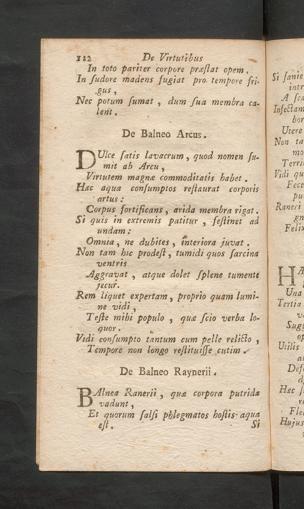 112 De Virtutibus
In toto pariter corpore præstat opem.
In sudore madens fugiat pro tempore fri-
gus,
Nec potum sumat, dum sua membra ca-
lent.
De Balneo Arcus.
DUlce satis lavacrum, quod nomen su-
mit ab Arcu,
Virtutem magnæ commoditatis habet.
Hæc aqua consumptos restaurat corporis
artus:
Corpus fortificans, arida membra rigat.
Si quis in extremis patitur, festinet ad
undam:
Omnia, ne dubites, interiora juvat.
Non tam hic prodest, tumidi quos sarcina
ventris
Aggravat, atque dolet splene tumente
jecur.
Rem liquet expertam, proprio quam lumi-
ne vidi,
Teste mihi populo, quæ scio verba lo-
quor.
Vidi consumpto tantum cum pelle relicto,
Tempore non longo restituisse cutim.
De Balneo Raynerii.
BAlnea Ranerii, quæ corpora putrida
vadunt,
Et quorum salsi phlegmatos hostis aqua
est. Si
Si sanie
A sca
Utere
Non ta
mo
Vidi qu
Fece
pu
Raneri
Felix
Una
Tertia
ve
Sugg
op
Utilis
Hæc s
Fle
Hujus